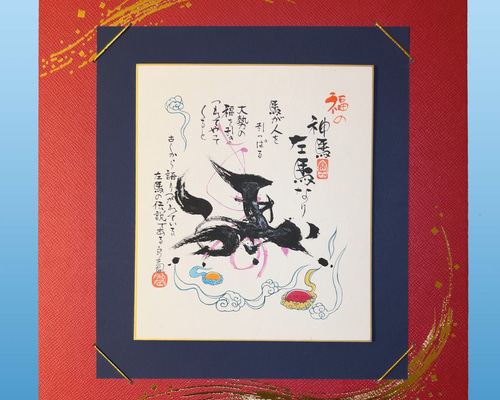 福の
神馬
左馬なり
馬が人を
引っぱる
大勢の
福を引き
つれてやって
くると
古くから語りつがれている
左馬の伝説